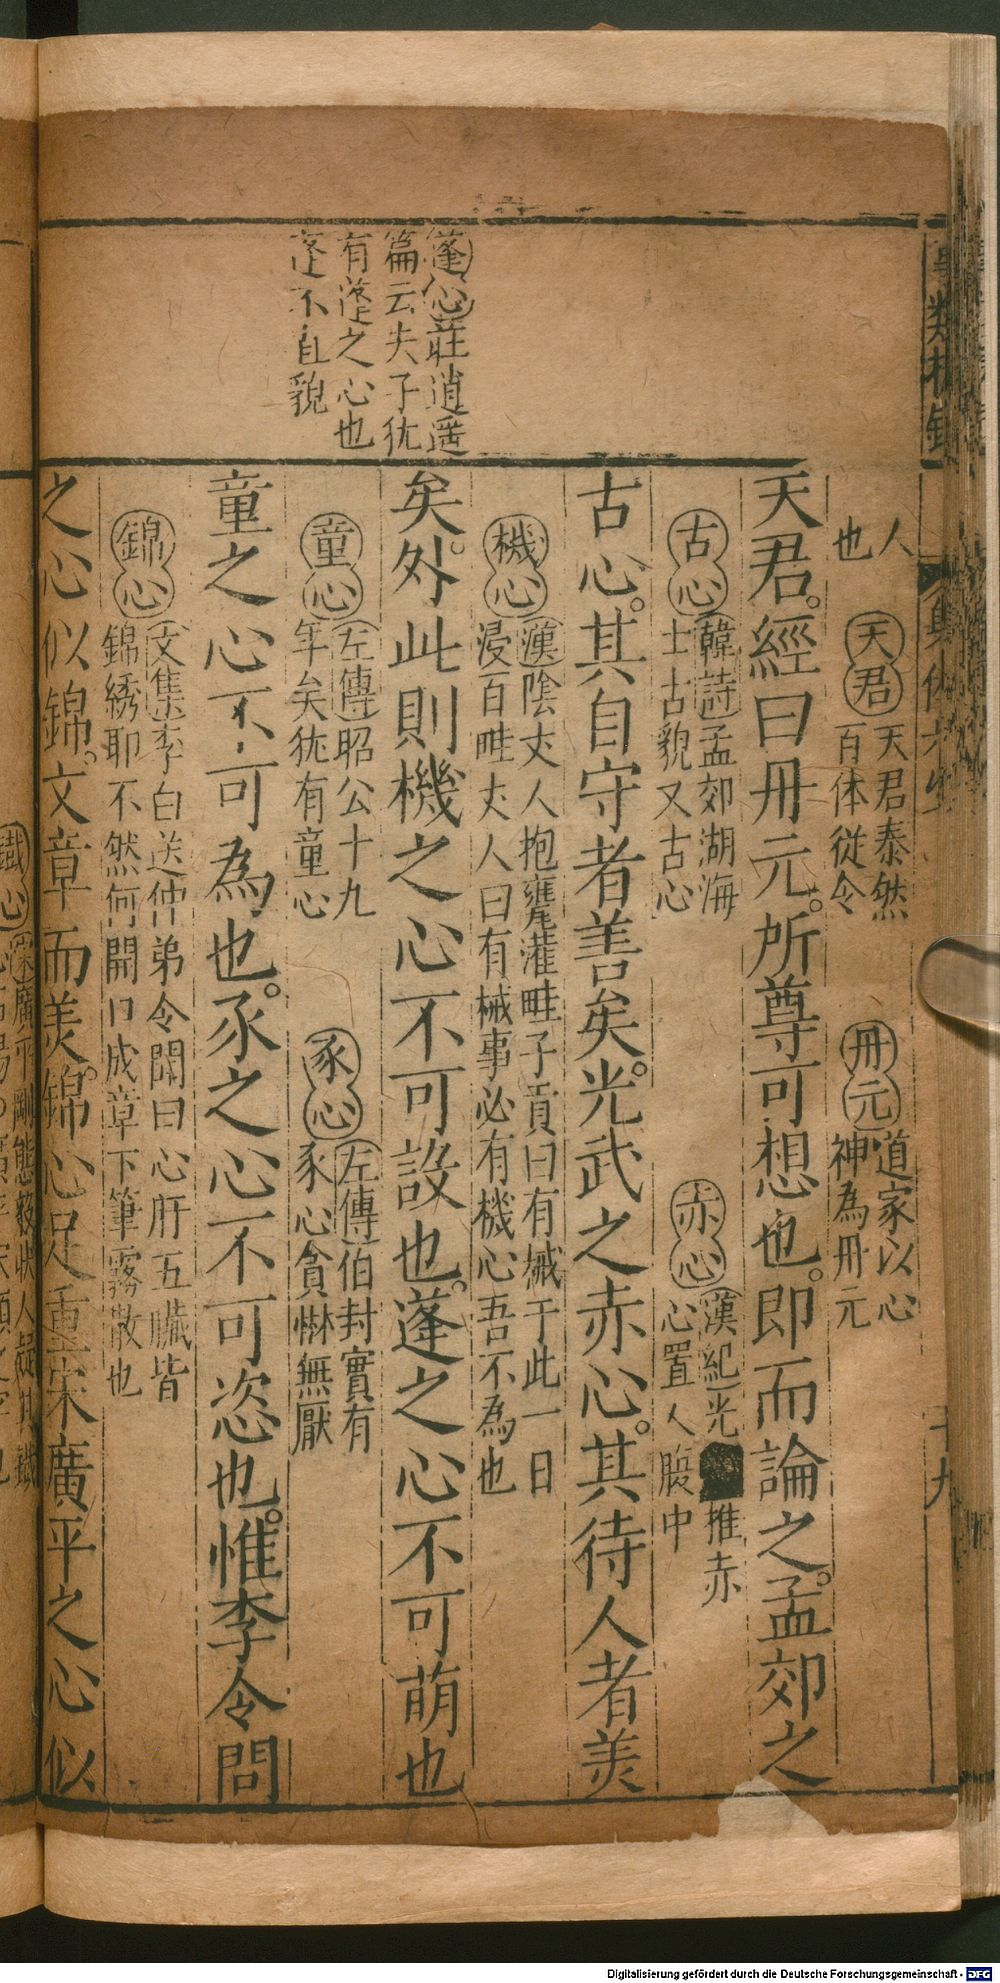 蓬心莊逍遥
篇云夫子犹
有蓬之心也
蓬不直貌
人
也
天君
天君泰然
百体從令
丹元
道家以心
神為丹元
天君。經曰丹元。所尊可想也。即而論之。孟郊之
古心
韓詩孟郊湖海
士古貌又古心
赤心
漢紀光
推赤
心置人腹中
古心。其自守者善矣。光武之赤心。其待人者美
機心
漢陰丈人抱甕灌畦子貢曰有械于此一日
浸百畦丈人曰有械事必有機心吾不為也
矣。外此則機之心不可設也。蓬之心不可萌也
童心
左傳昭公十九
年矣犹有童心
豕心
左傳伯封實有
豕心貪惏無厭
童之心不可為也。豕之心不可恣也。惟李令問
錦心
文集李白送仲弟令問曰心肝五臟皆
錦綉耶不然何開口成章下筆霧散也
之心似錦。文章而美。錦心足重宋廣平之心似
鐵心
Digitalisierung gefördert durch die Deutsche Forschungsgemeinschaft - DFG